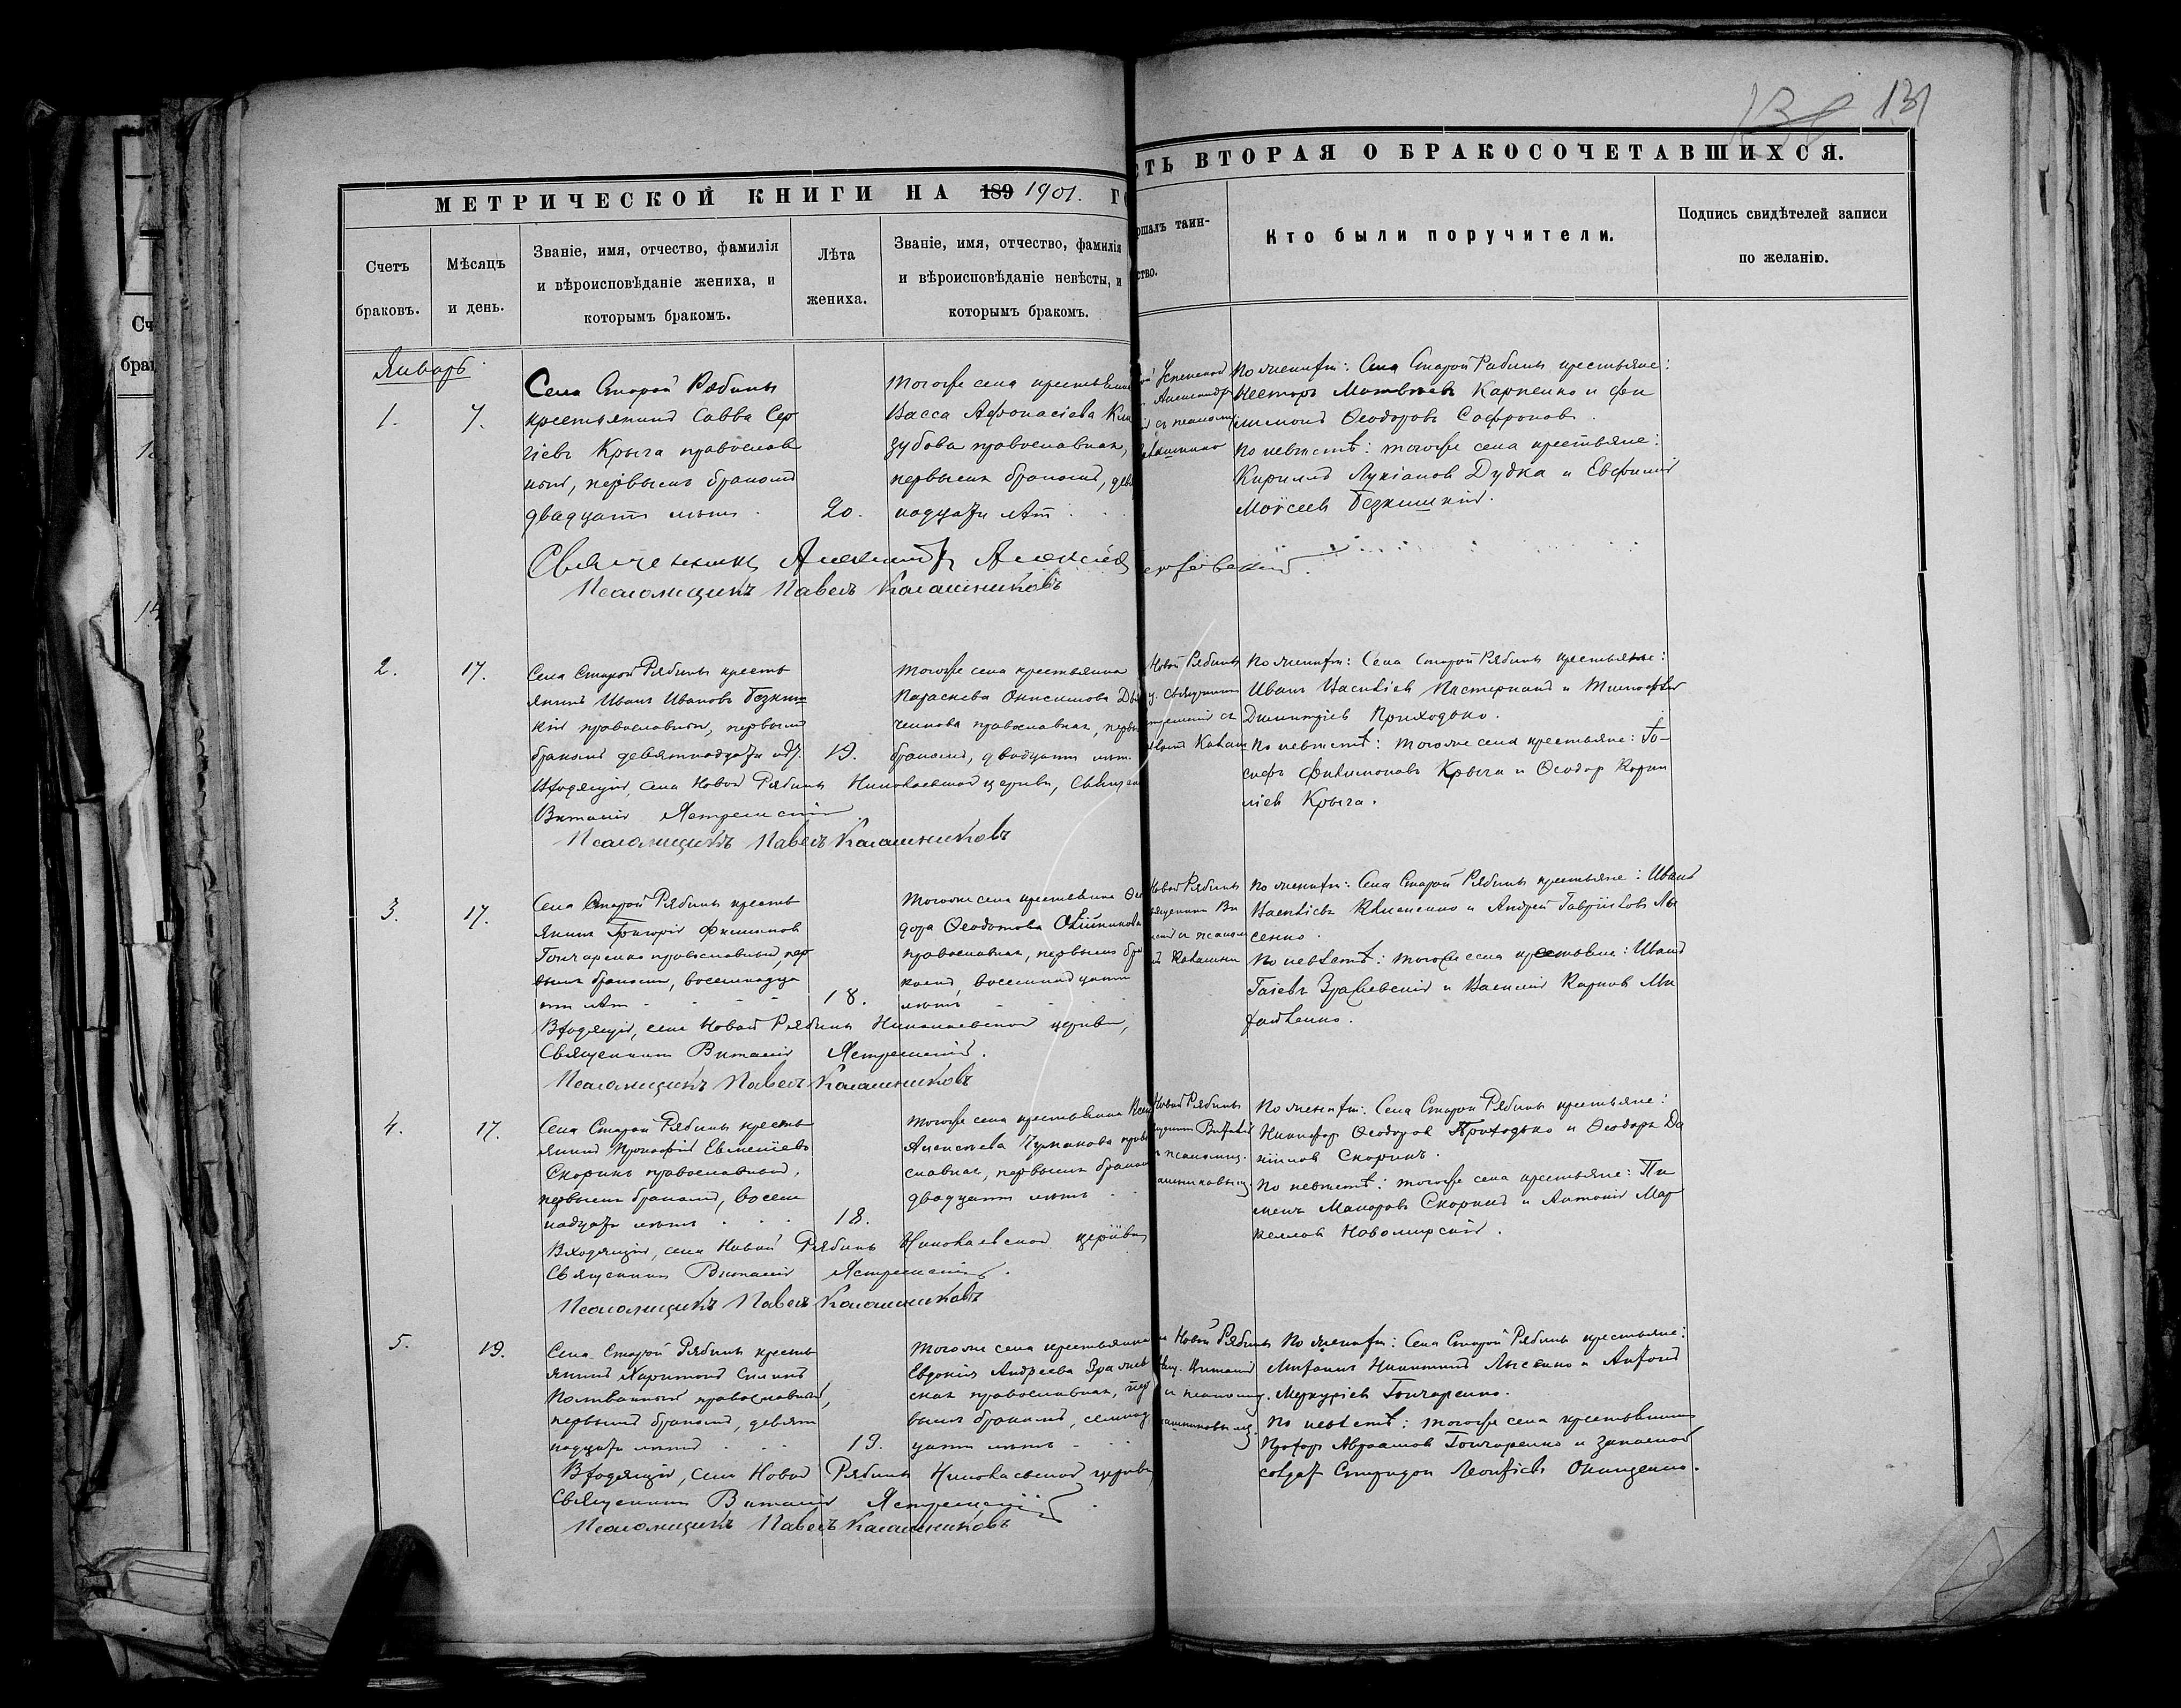 131
МЕТРИЧЕСКОЙ КНИГИ НА 189 1901. ГО
СТЬ ВТОРАЯ О БРАКОСОЧЕТАВШИХСЯ.
Счетъ браковъ.
Мѣсяцъ и день.
Званіе, имя, отчество, фамилія
и вѣроисповѣданіе жениха, и
которымъ бракомъ.
Лѣта
жениха.
Званіе, имя, отчество, фамилія
и вѣроисповѣданіе невѣсты, и
которымъ бракомъ.
ршалъ таин-
ство.
Кто были поручители.
Подпись свидѣтелей записи
по желанію.
Январь
1.
7.
Села Старой Рябины
крестьянинъ Савва Сер
гіевъ Крыга православ
ный, первымъ бракомъ
двадцати лѣтъ.
20.
Тогоже села крестьянка
Васса Аѳонасіева
зубова православная,
первымъ бракомъ, дев
надцати лѣт
Успенской
Александръ
По женихѣ: Села Старой Рябины крестьяне:
Несторъ Матвѣевъ Карпенко и Фи
лимонъ Ѳеодоровъ Софроновъ.
По невѣстѣ: тогоже села крестьяне:
Кириллъ Лукіановъ Дудка и Евфимій
Моѵсеевъ Безкишкій.
Священникъ Александръ Алексѣев
Псаломщикъ Павелъ Калашниковъ
2.
17.
Села Старой Рябины кресть
янинъ Иванъ Ивановъ Безкиш
кій православный, первымъ
бракомъ девятнадцати лѣт.
19.
Тогоже села крестьянка
Параскева Онисимова
православная, первы
бракомъ, двадцати лѣт.
Новой Рябины
По женихѣ: Села Старой Рябины крестьяне:
Иванъ Васильевъ Пастернакъ и Тимоѳей
Димитріевъ Приходько.
По невѣстѣ: тогоже села крестьяне: Іо-
сифъ Филимоновъ Крыга и Ѳеодоръ Корни
ліевъ Крыга.
Входящій, села Новой Рябины Николаевской церкви, Священ
Виталій Ястремскій
Псаломщикъ Павелъ Калашниковъ
3.
17.
Села Старой Рябины кресть
янинъ Григорій Филиповъ
Гончаренко православный, пер
вымъ бракомъ, восемнадца
ти лѣт
18.
Тогоже села крестьянка Ѳео
дора Ѳеодотова Олійникова
православная, первымъ бра
комъ, восемнадцати
лѣтъ
Новой Рябины
По женихѣ: Села Старой Рябины крестьяне: Иванъ
Васильевъ Клименко и Андрей Гавріиловъ Лы
сенко.
По невѣстѣ: тогоже села крестьяне: Иванъ
Гаіевъ Зражевскій и Василій Карповъ Ми
хайленко.
Входящій, села Новой Рябины Николаевской церкви,
Священникъ Виталій Ястремскій.
Псаломщикъ Павелъ Калашниковъ
4.
17.
Села Старой Рябины кресть
янинъ Прокофій Евменіевъ
Скорикъ православный,
первымъ бракомъ, восем
надцати лѣтъ
18.
Тогоже села крестьянка Ксен
Алексѣева Чумакова право
славная, первымъ браком
двадцати лѣтъ
Новой Рябины
По женихѣ: Села Старой Рябины крестьяне:
Никифоръ Ѳеодоровъ Приходько и Ѳеодоръ Да
ніиловъ Скорикъ.
По невѣстѣ: тогоже села крестьяне: Пи
менъ Макаровъ Скорикъ и Антоній Мар
келловъ Новомирскій.
Входящій, села Новой Рябины Николаевской церкви
Священникъ Виталій Ястремскій.
Псаломщикъ Павелъ Калашниковъ
5.
19.
Села Старой Рябины кресть
янинъ Харитонъ Силинъ
православный,
первымъ бракомъ, девят
надцати лѣтъ
19.
Тогоже села крестьянка
Евдокія Андреева Зражев
ская православная, пер
вымъ бракомъ, семнад
цати лѣтъ
Новой Рябины
По женихѣ: Села Старой Рябины крестьяне:
Михаилъ Никитинъ Лысенко и Антоній
Меркуріевъ Гончаренко.
По невѣстѣ: тогоже села крестьянинъ
Прохоръ Авраамовъ Гончаренко и запасной
солдат Спиридонъ Леонтіевъ Онищенко.
Входящій, села Новой Рябины Николаевской церкви
Священникъ Виталій Ястремскій
Псаломщикъ Павелъ Калашниковъ